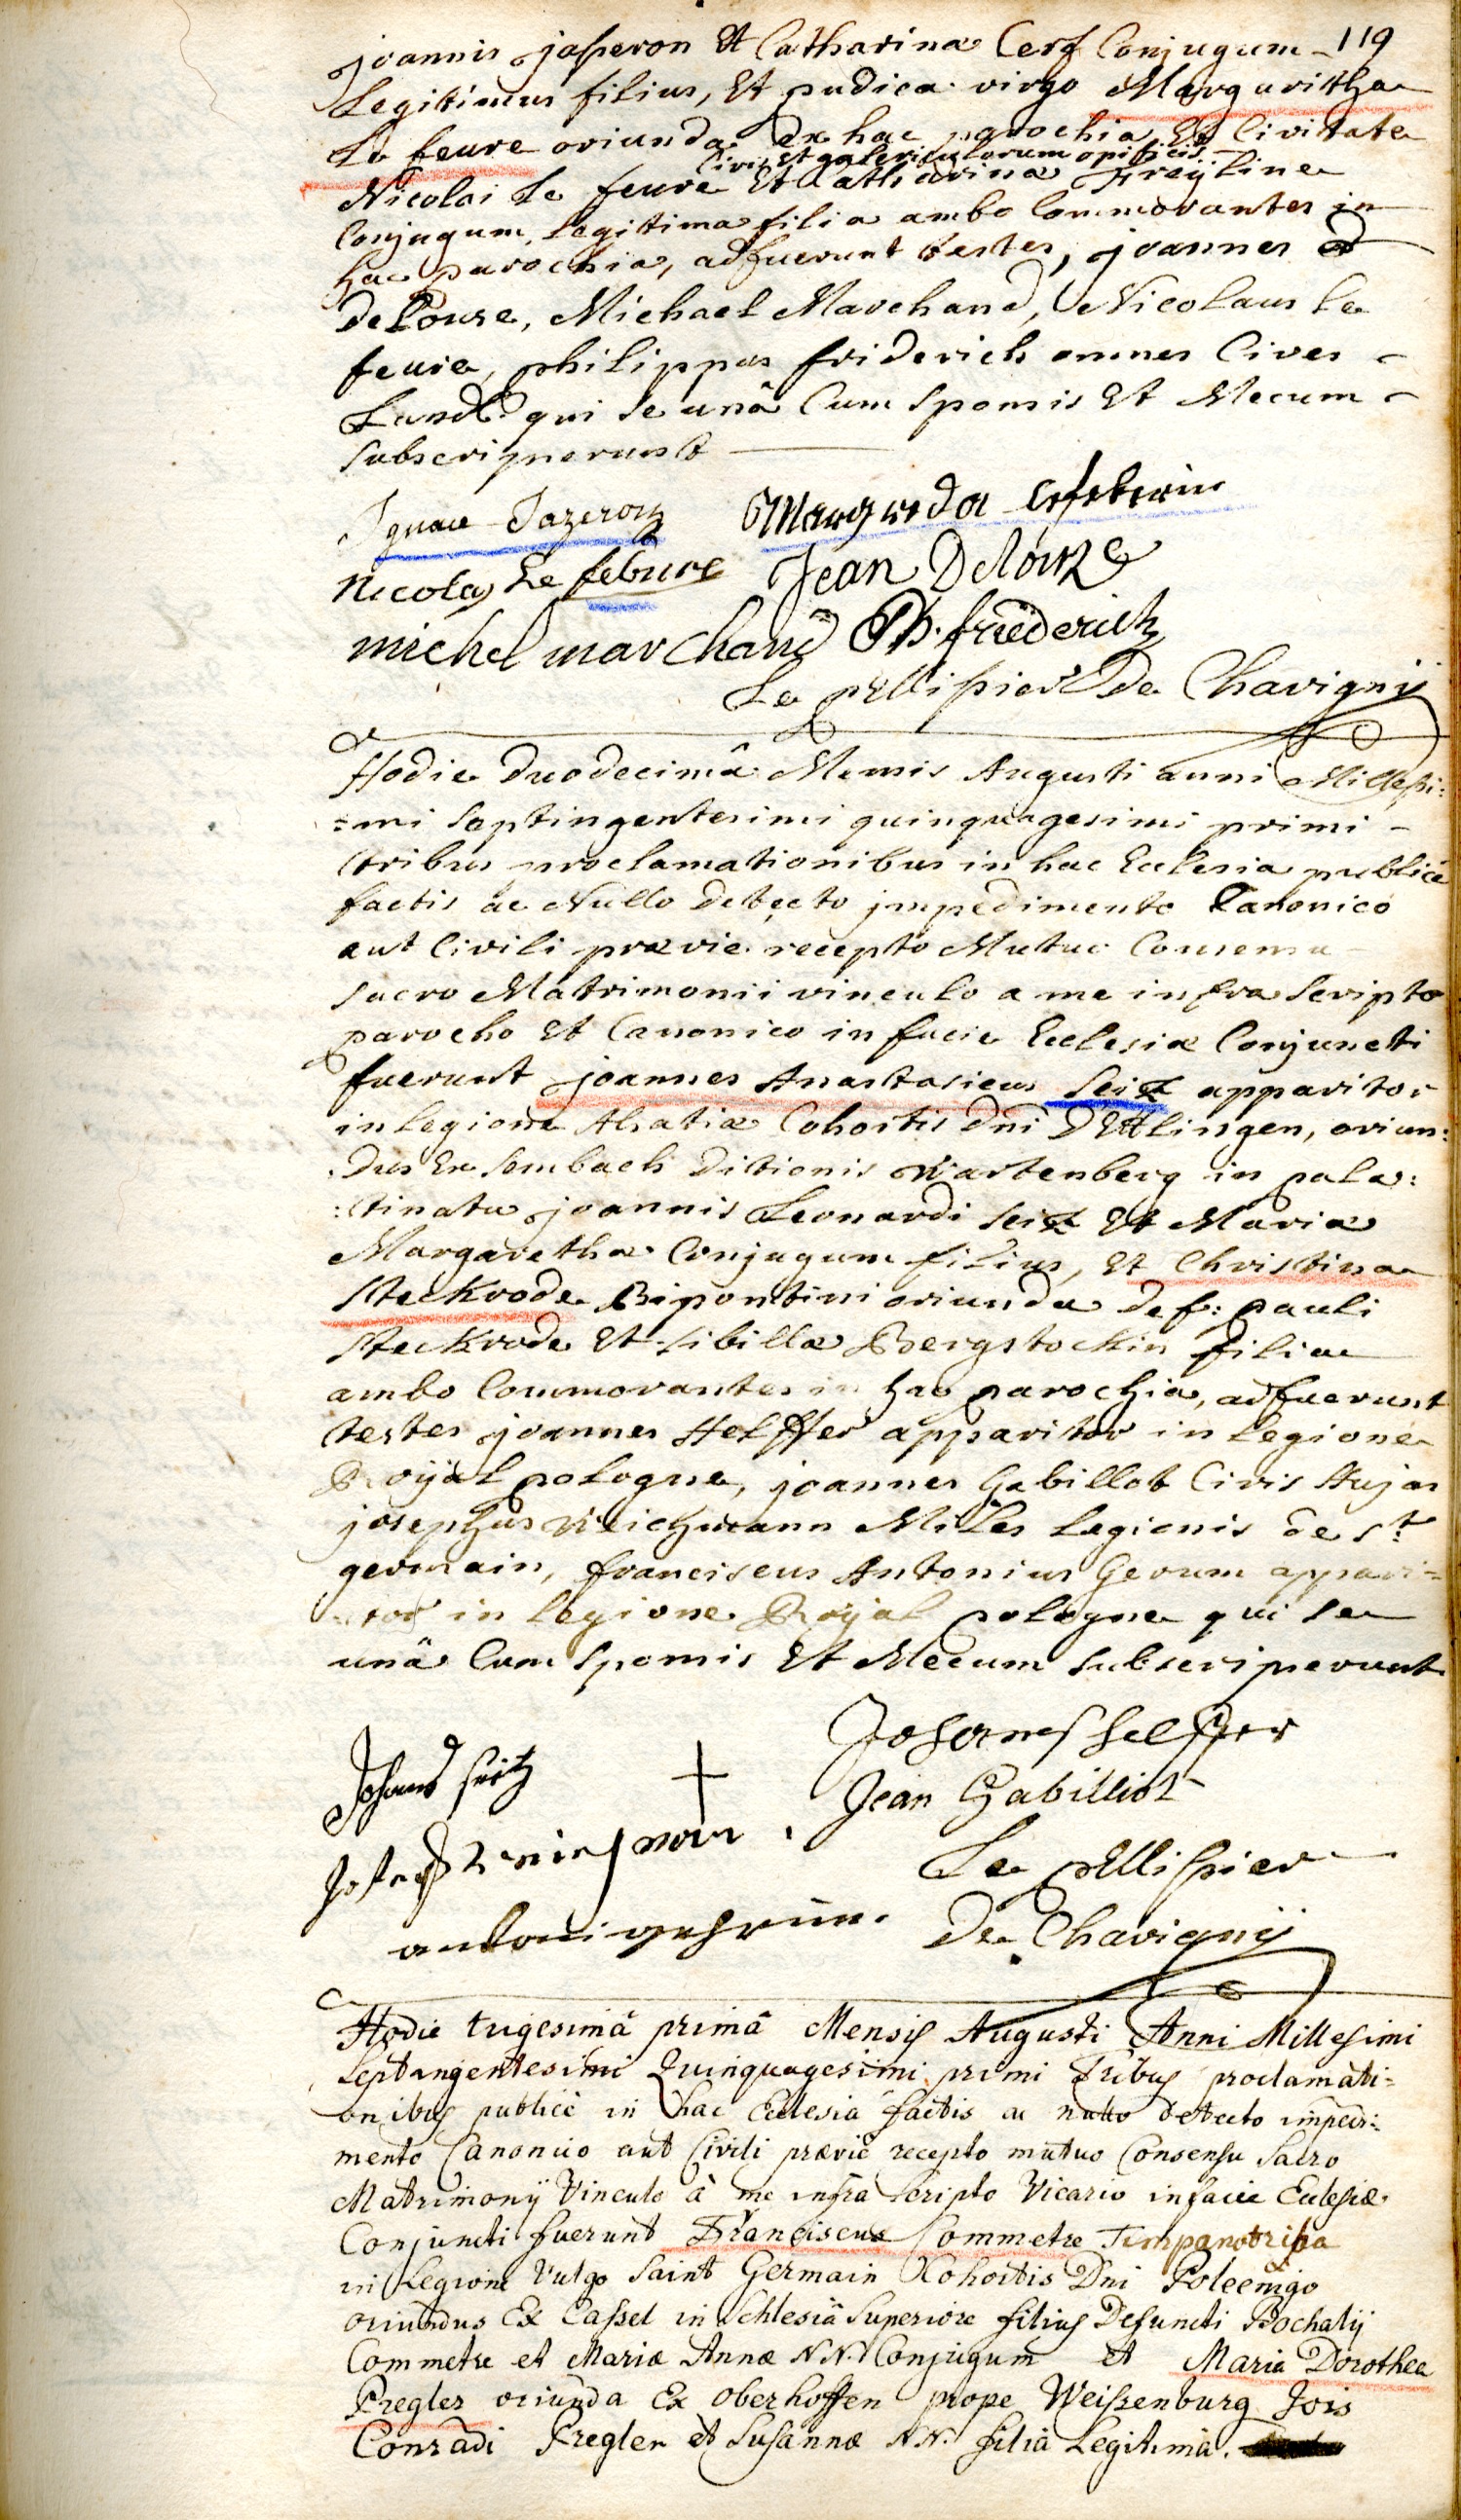 joannis jasperon Et Catharinæ Cerf Conjugum - 119
Legitimus filius, Et pudica virgo Margaritha
Le feure oriunda ex hac parochia Et Civitate
Civis Et galericulorum opificis
Nicolai Le feure Et Catharinæ Freyline
Conjugum, Legitima filia ambo Commorantes in
hac parochia, adfuerunt testes, joannes
deLouse, Michael Marchand, Nicolaus Le
feure, philippus friderich omnes Cives
Land: qui se unâ Cum Sponsis Et Mecum
Subscripserunt
Ignace Jazeron Margreda lefeberin
Nicolas Le febure Jean Delouze
michel marchand Ph. friederich
Le pellissier De Chavignij
Hodie Duodecimâ Mensis Augusti anni Millesi:
=mi Septingentesimi quinquagesimi primi -
tribus proclamationibus in hac Ecclesia publicè
factis ac Nullo detecto jmpedimento Canonico
aut Civili prævie recepto Mutuo Consensu
Sacro Matrimonii vinculo a me infra Scripto
parocho Et Canonico in facie Ecclesiæ Conjuncti
fuerunt joannes Anastasieus Seitz apparitor
in Legione Alsatiæ Cohortis dni DEttlingen, oriun:
dus Ex Sembach Ditionis Wartenberg in pala:
:tinatu joannis Leonardi Seitz Et Mariæ
Margarethæ Conjugum filius, Et Christina
Steckrode Bipontini oriunda def: pauli
Steckrode Et Sibillæ Bergstockin filia
ambo Commorantes in hac parochia, adfuerunt
testes joannes Helffer apparitor in Legione
Royal pologne, joannes Gabillot Civis Hujas
josephus Weichmann Miles Legionis de St
germain, franciscus Antonius Gerum appari=
=tor in Legione Royal pologne qui se
unâ Cum Sponsis Et Mecum Subscripserunt
Johannes helffer
Johans seitz + Jean Gabilliot
Le pellissier
De Chavignij
Hodie trigesimâ primâ Mensis Augusti Anni Millesimi
Septingentesimi Quinquagesimi primi Tribus proclamati=
onibus publicè in hac Ecclesia factis ac nullo detecto impedi=
mento Canonico aut Civili prævie recepto mutuo Consensu Sacro
Matrimonij Vinculo à me infra Scripto Vicario in facie Ecclesiæ
Conjuncti fuerunt Franciscus Commetre Timpanotriba
in Legione Vulgo Saint Germain Cohortis Dni Poleenigo
oriundus Ex Cassel in Schlesiâ Superiore filius Defuncti Bochalij
Commetre et Mariæ Annæ N.N. Conjugum et Maria Dorothea
Fregler oriunda Ex Oberhoffen prope Weissenburg Jois
Conradi Fregler et Susannæ N.N. filia Legitima.